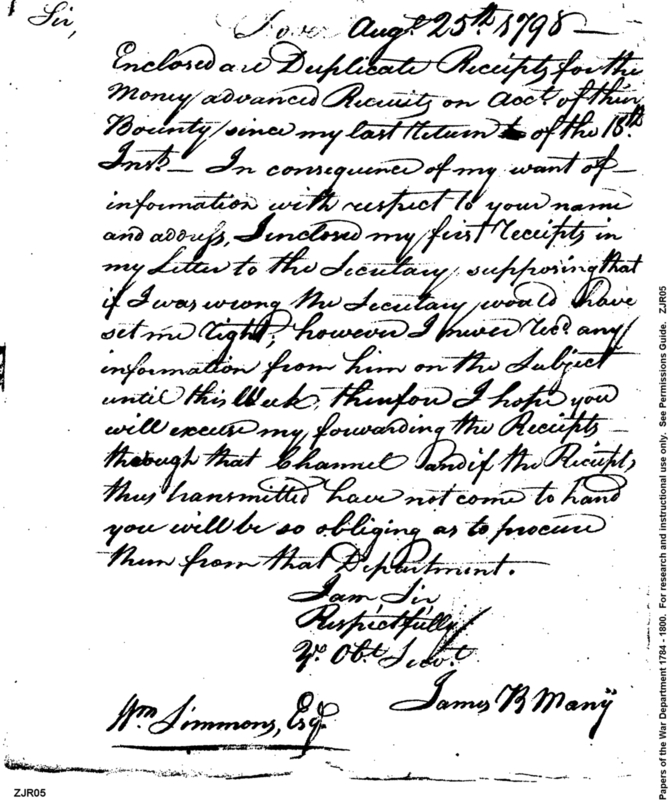 Sir,
Dover Augt. 25th. 1798 —
Enclosed are Duplicate Receipts for the
Money advanced Recruits on Acct. of their
Bounty since my last Return of the 18th.
Inst. — In consequence of my want of —
information with respect to your name
and address, I enclosed my first receipts in
my Letter to the Secretary, supposing that
if I was wrong the Secretary would have
set me right, however I never recd. any
information from him on the Subject
until this Week, therefore I hope you
will excuse my forwarding the Receipts —
through that Channel and if the Receipts
thus transmitted have not come to hand
you will be so obliging as to procure
them from that Department.
I am Sir
Respectfully
Yr. Obt. Servt.
James B Many
Wm Simmons, Esqr.
ZJR05
Papers of the War Department 1784 - 1800. For research and instructional use only. See Permissions Guide. ZJR05